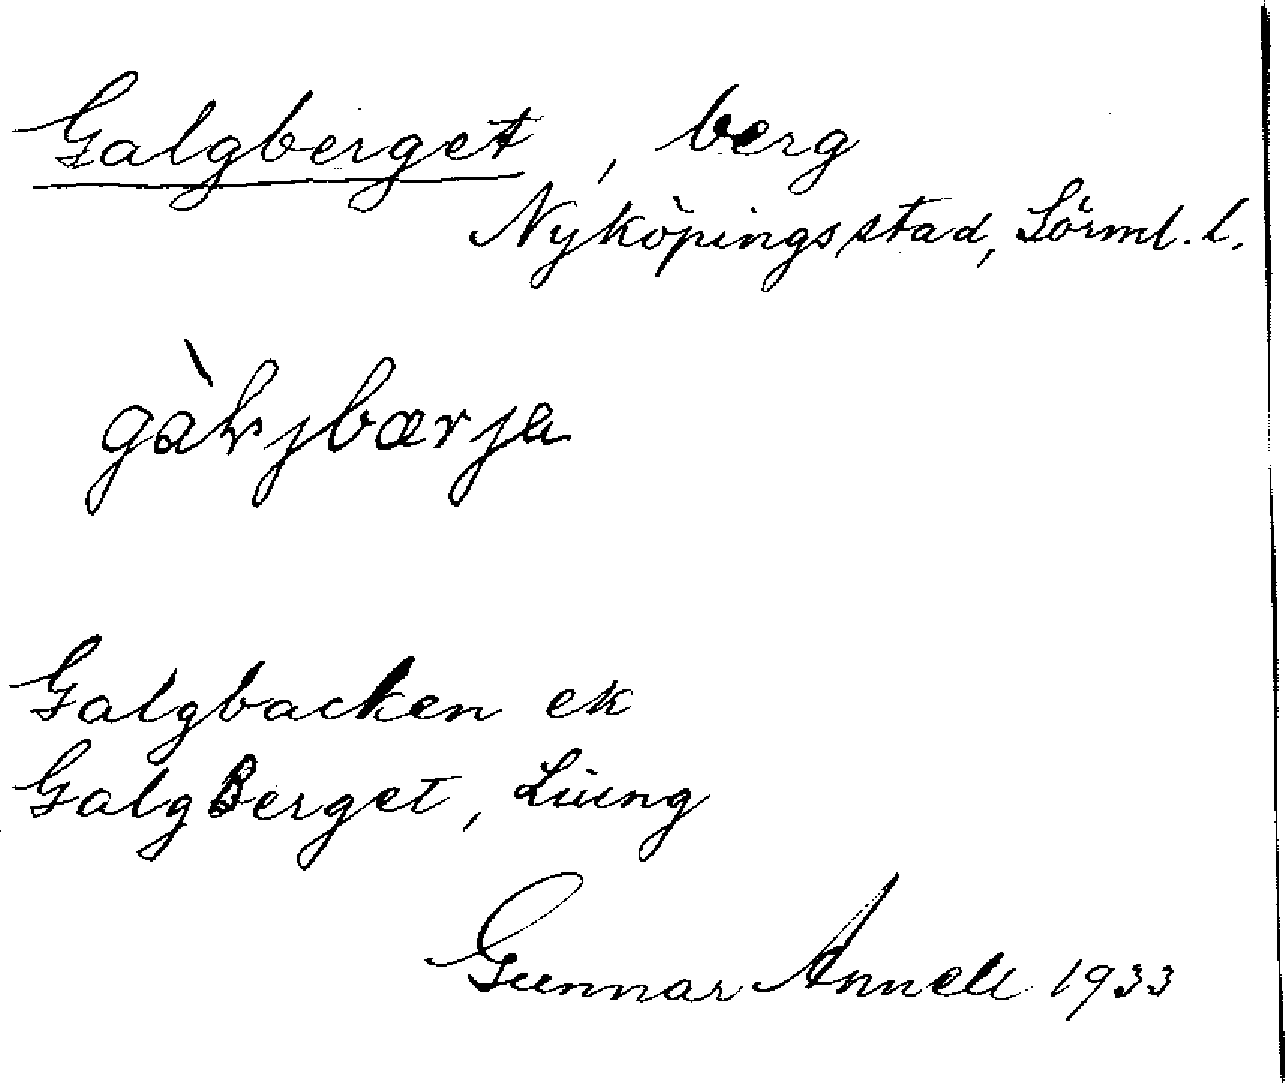 Galgberget, berg
Nyköpings stad, Sörml. l.
Galgbacken ek
GalgBerget, Liung
Gunnar Annell 1933